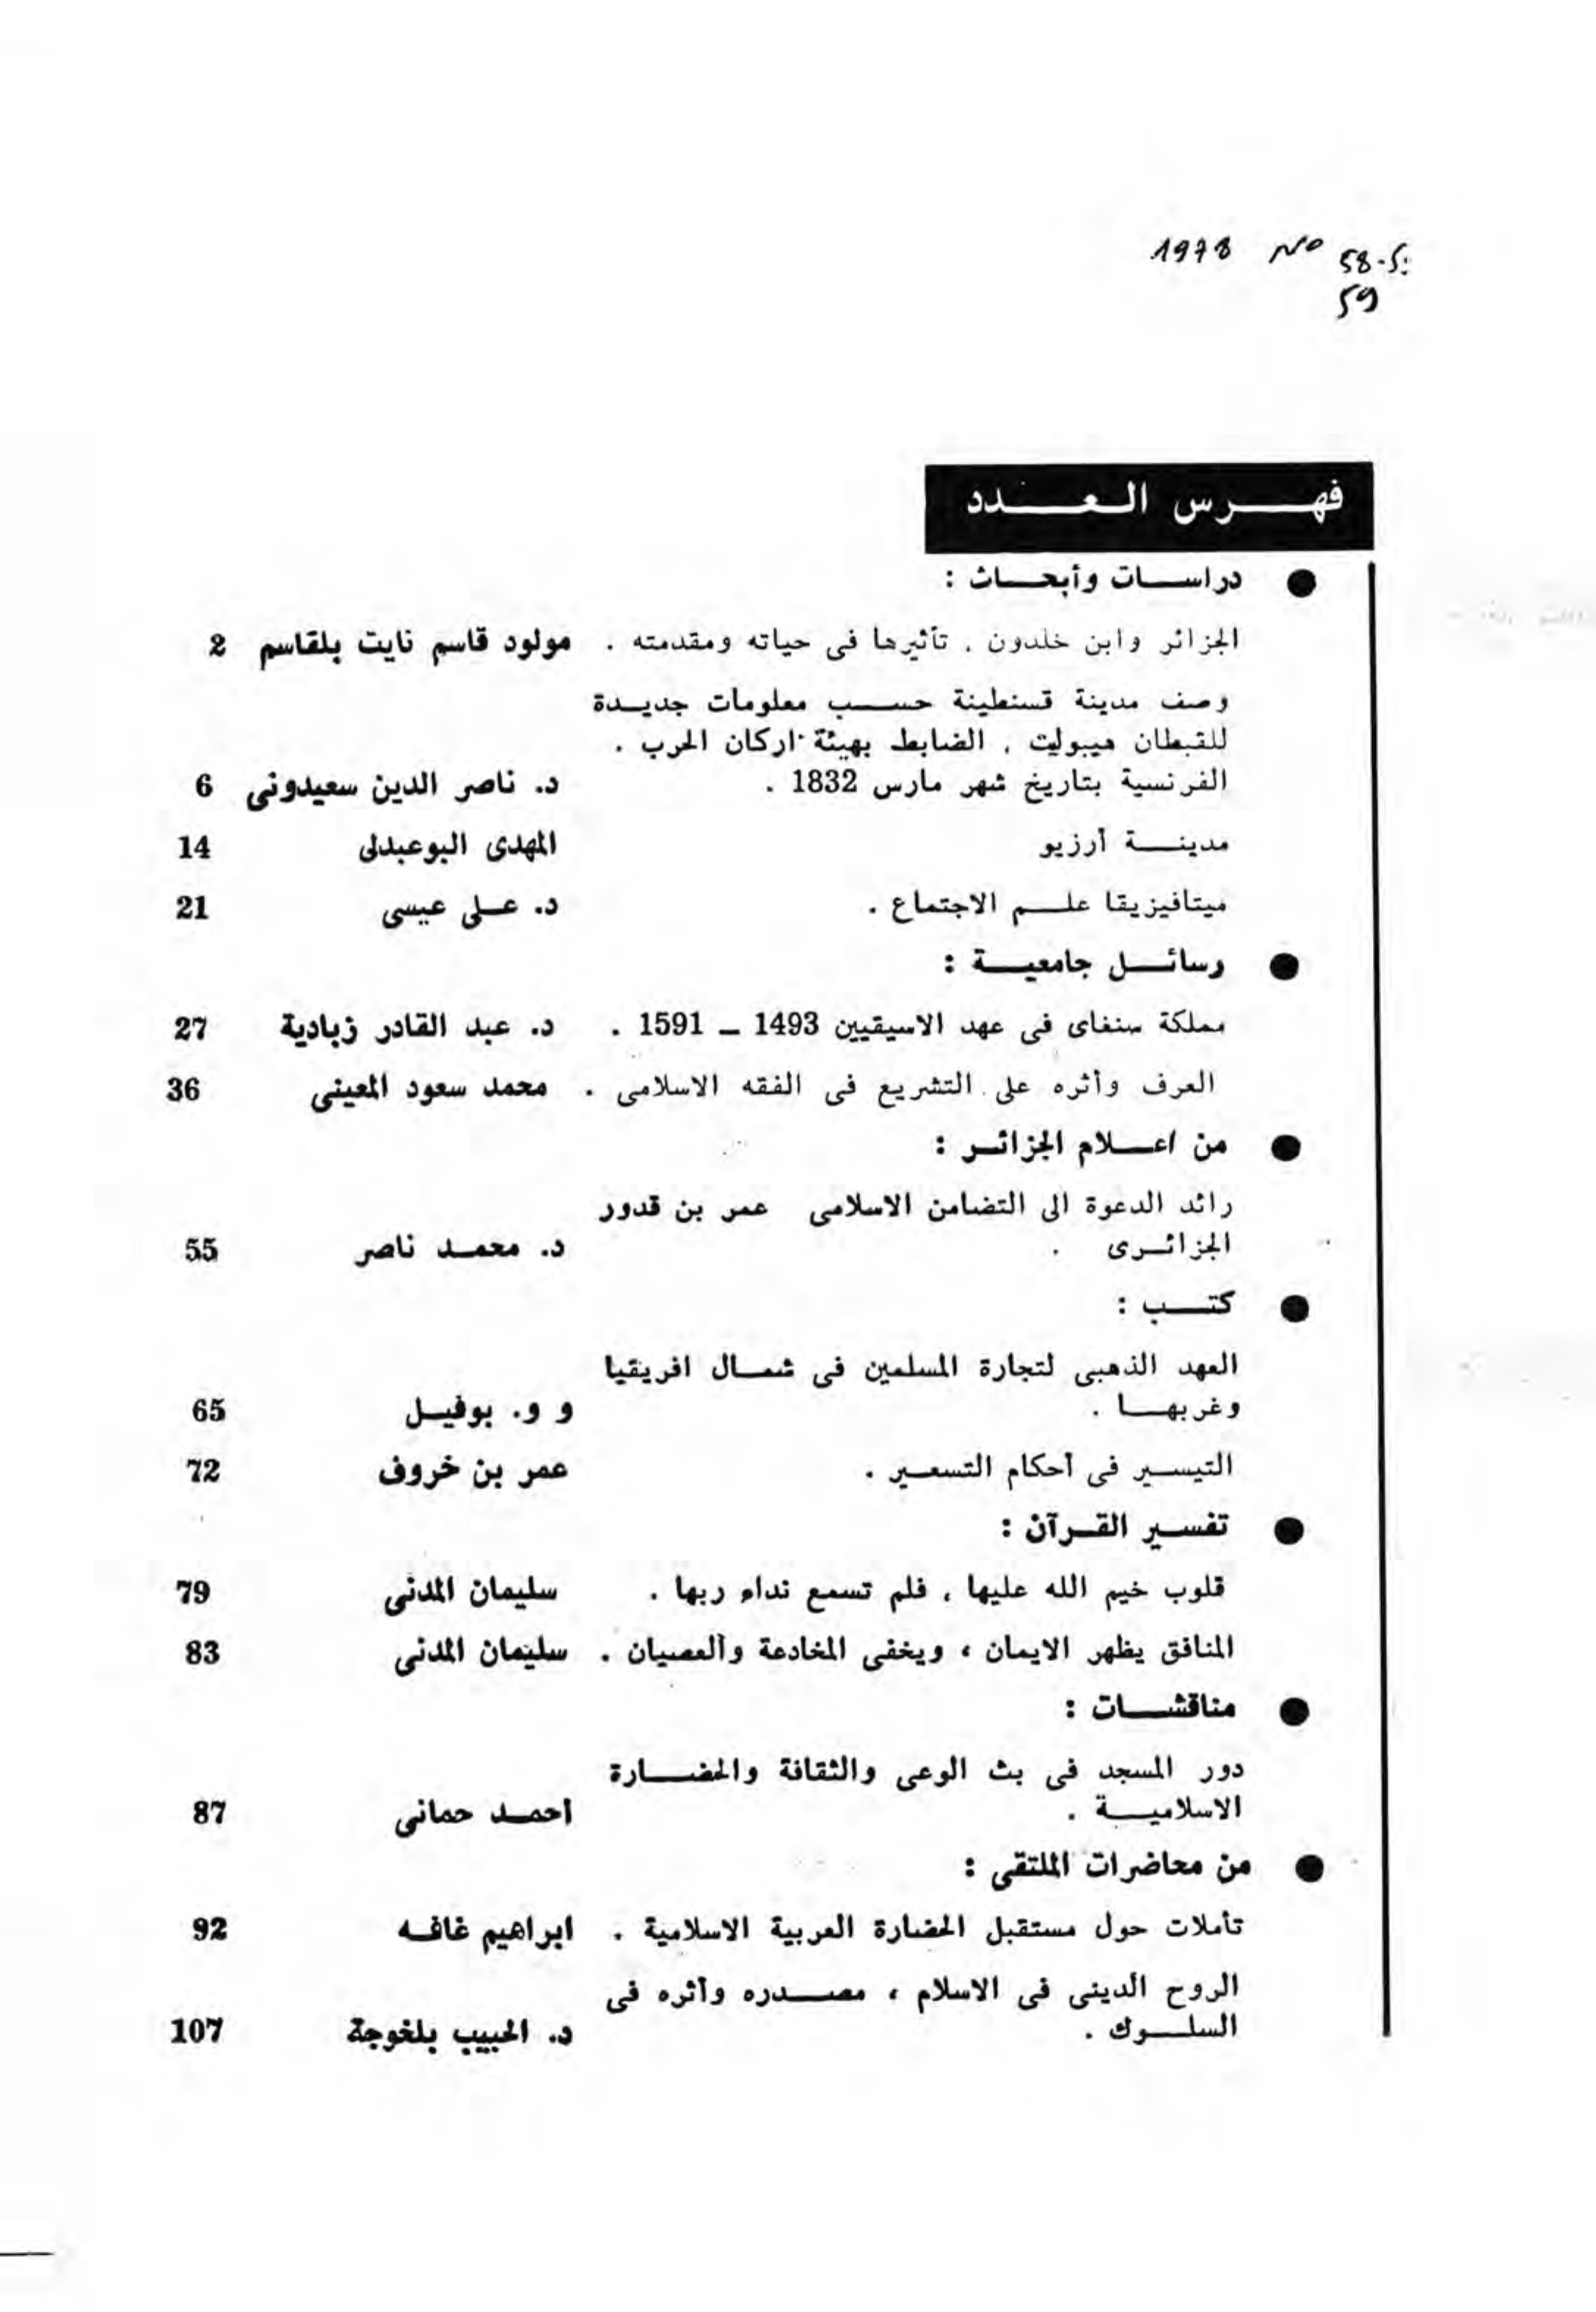 1978 No 58-5
59
فهرس العدد
● دراسات وأبحاث :
الجزائر وابن خلدون . تأثيرها فى حياته ومقدمته . مولود قاسم نايت بلقاسم 2
وصف مدينة قسنطينة حسب معلومات جديدة
للقبطان هيبوليت . الضابط بهيئة اركان الحرب .
الفرنسية بتاريخ شهر مارس 1832 . د. ناصر الدين سعيدونى 6
مدينة أرزيو المهدى البوعبدلى 14
ميتافيزيقا علم الاجتماع . د. على عيسى 21
● رسائل جامعية :
مملكة سنغاى فى عهد الاسيقيين 1493 – 1591 . د. عبد القادر زبادية 27
العرف وأثره على التشريع فى الفقه الاسلامى . محمد سعود المعينى 36
● من اعلام الجزائر :
رائد الدعوة الى التضامن الاسلامى عمر بن قدور
الجزائرى . د. محمد ناصر 55
● كتب :
العهد الذهبى لتجارة المسلمين فى شمال افريقيا
وغربها . و و. بوفيل 65
التيسير فى أحكام التسعير . عمر بن خروف 72
● تفسير القرآن :
قلوب خيم الله عليها ، فلم تسمع نداء ربها . سليمان المدنى 79
المنافق يظهر الايمان ، ويخفى المخادعة والعصيان . سليمان المدنى 83
● مناقشات :
دور المسجد فى بث الوعى والثقافة والحضارة
الاسلامية . احمد حمانى 87
● من محاضرات الملتقى :
تأملات حول مستقبل الحضارة العربية الاسلامية . ابراهيم غافه 92
الروح الدينى فى الاسلام ، مصدره وأثره فى
السلوك . د. الحبيب بلخوجة 107